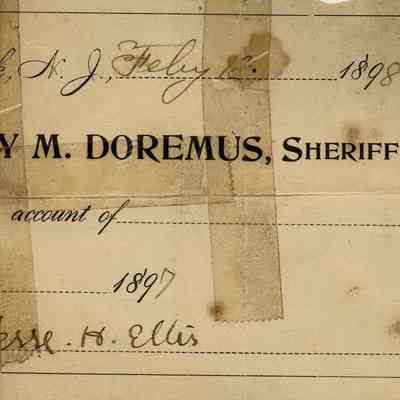 N. J., Feby 1898
Y M. DOREMUS, SHERIFF
account of
1897
esse. H. Ellis